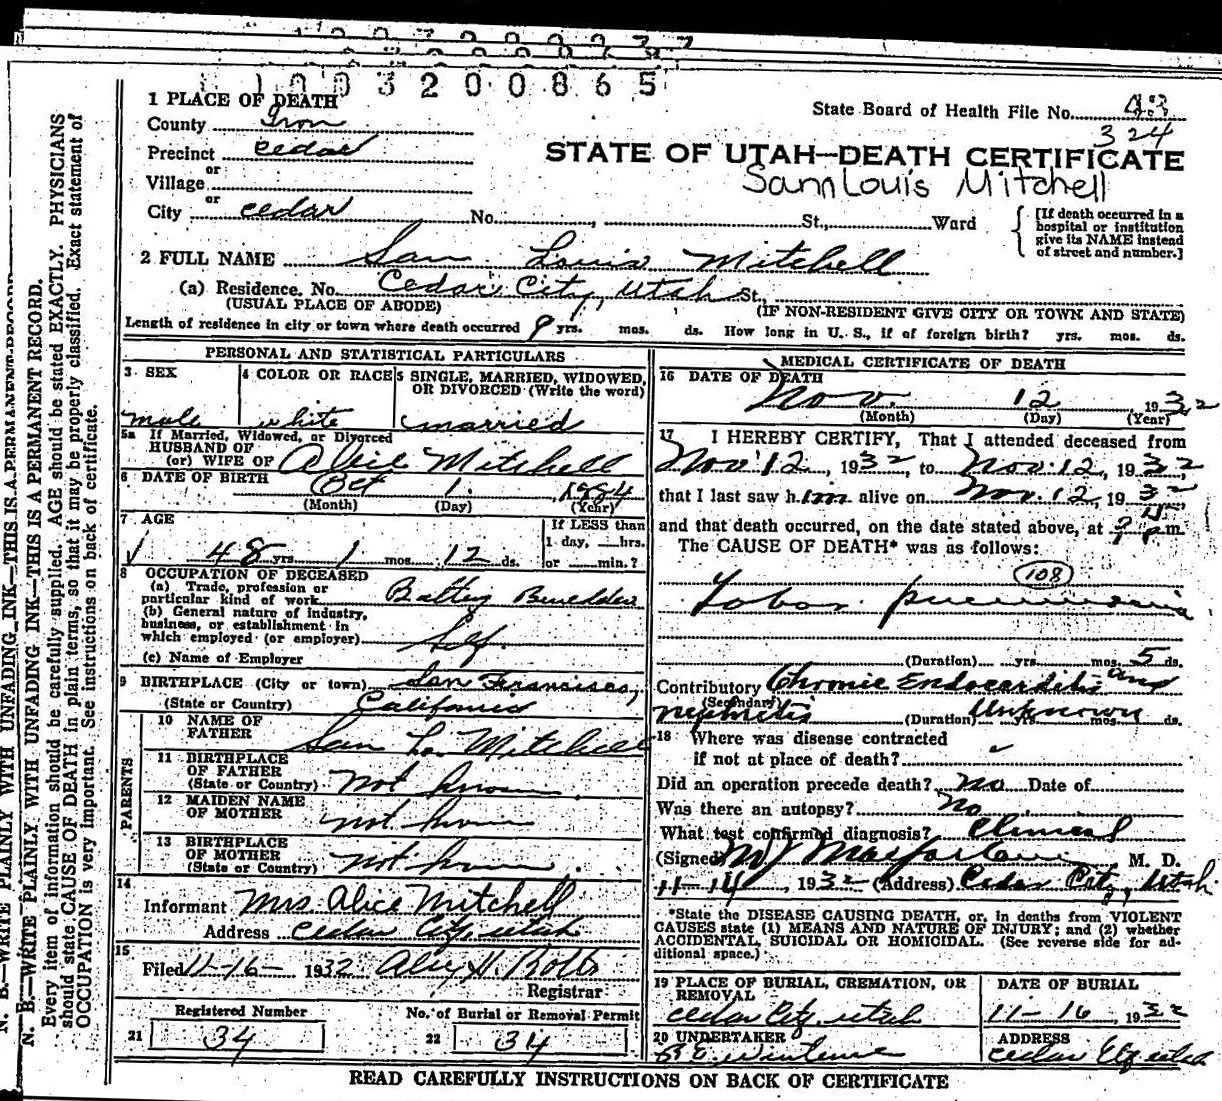 1003200865
1 PLACE OF DEATH
State Board of Health File No. 43
324
County Iron
STATE OF UTAH—DEATH CERTIFICATE
Precinct Cedar
Sam Louis Mitchell
or
Village
or
City Cedar No. , St., Ward
[If death occurred in a
hospital or institution
give its NAME instead
of street and number.]
2 FULL NAME Sam Louis Mitchell
(a) Residence. No. Cedar City, Utah St.,
(USUAL PLACE OF ABODE) (IF NON-RESIDENT GIVE CITY OR TOWN AND STATE)
Length of residence in city or town where death occurred 9 yrs. mos. ds. How long in U. S., if of foreign birth? yrs. mos. ds.
PERSONAL AND STATISTICAL PARTICULARS
3 SEX
male
4 COLOR OR RACE
white
5 SINGLE, MARRIED, WIDOWED,
OR DIVORCED (Write the word)
married
5a If Married, Widowed, or Divorced
HUSBAND OF
(or) WIFE OF Alice Mitchell
6 DATE OF BIRTH Oct 1, 1884
(Month) (Day) (Year)
7 AGE
48 yrs 1 mos. 12 ds.
If LESS than
1 day, hrs.
or min.?
8 OCCUPATION OF DECEASED
(a) Trade, profession or
particular kind of work Battery Builder
(b) General nature of industry,
business, or establishment in
which employed (or employer) Self
(c) Name of Employer
9 BIRTHPLACE (City or town) San Francisco,
(State or Country) California
PARENTS
10 NAME OF
FATHER Sam L. Mitchell
11 BIRTHPLACE
OF FATHER
(State or Country) not known
12 MAIDEN NAME
OF MOTHER not known
13 BIRTHPLACE
OF MOTHER
(State or Country) not known
14
Informant Mrs. Alice Mitchell
Address Cedar City, Utah
15
Filed 11-16- 1932
Registrar
Registered Number
21 34
No. of Burial or Removal Permit
22 34
MEDICAL CERTIFICATE OF DEATH
16 DATE OF DEATH
Nov. 12 1932
(Month) (Day) (Year)
17 I HEREBY CERTIFY, That I attended deceased from
Nov. 12, 1932 to Nov. 12, 1932
that I last saw him alive on Nov. 12, 1932
and that death occurred, on the date stated above, at p.m.
The CAUSE OF DEATH* was as follows:
108
Lobar pneumonia
(Duration) yrs. mos. 5 ds.
Contributory Chronic Endocarditis and
(Secondary)
nephritis (Duration) Unknown yrs. mos. ds.
18 Where was disease contracted
if not at place of death?
Did an operation precede death? no Date of
Was there an autopsy? no
What test confirmed diagnosis? Clinical
(Signed) M J Macfarlane, M. D.
11-14, 1932 (Address) Cedar City, Utah
*State the DISEASE CAUSING DEATH, or, in deaths from VIOLENT
CAUSES state (1) MEANS AND NATURE OF INJURY; and (2) whether
ACCIDENTAL, SUICIDAL OR HOMICIDAL. (See reverse side for ad-
ditional space.)
19 PLACE OF BURIAL, CREMATION, OR
REMOVAL
Cedar City, Utah
DATE OF BURIAL
11-16, 1932
20 UNDERTAKER
ADDRESS
Cedar City Utah
READ CAREFULLY INSTRUCTIONS ON BACK OF CERTIFICATE
N. B.—WRITE PLAINLY WITH UNFADING INK—THIS IS A PERMANENT RECORD.
N. B.—WRITE PLAINLY, WITH UNFADING INK—THIS IS A PERMANENT RECORD.
Every item of information should be carefully supplied. AGE should be stated EXACTLY. PHYSICIANS
should state CAUSE OF DEATH in plain terms, so that it may be properly classified. Exact statement of
OCCUPATION is very important. See instructions on back of certificate.